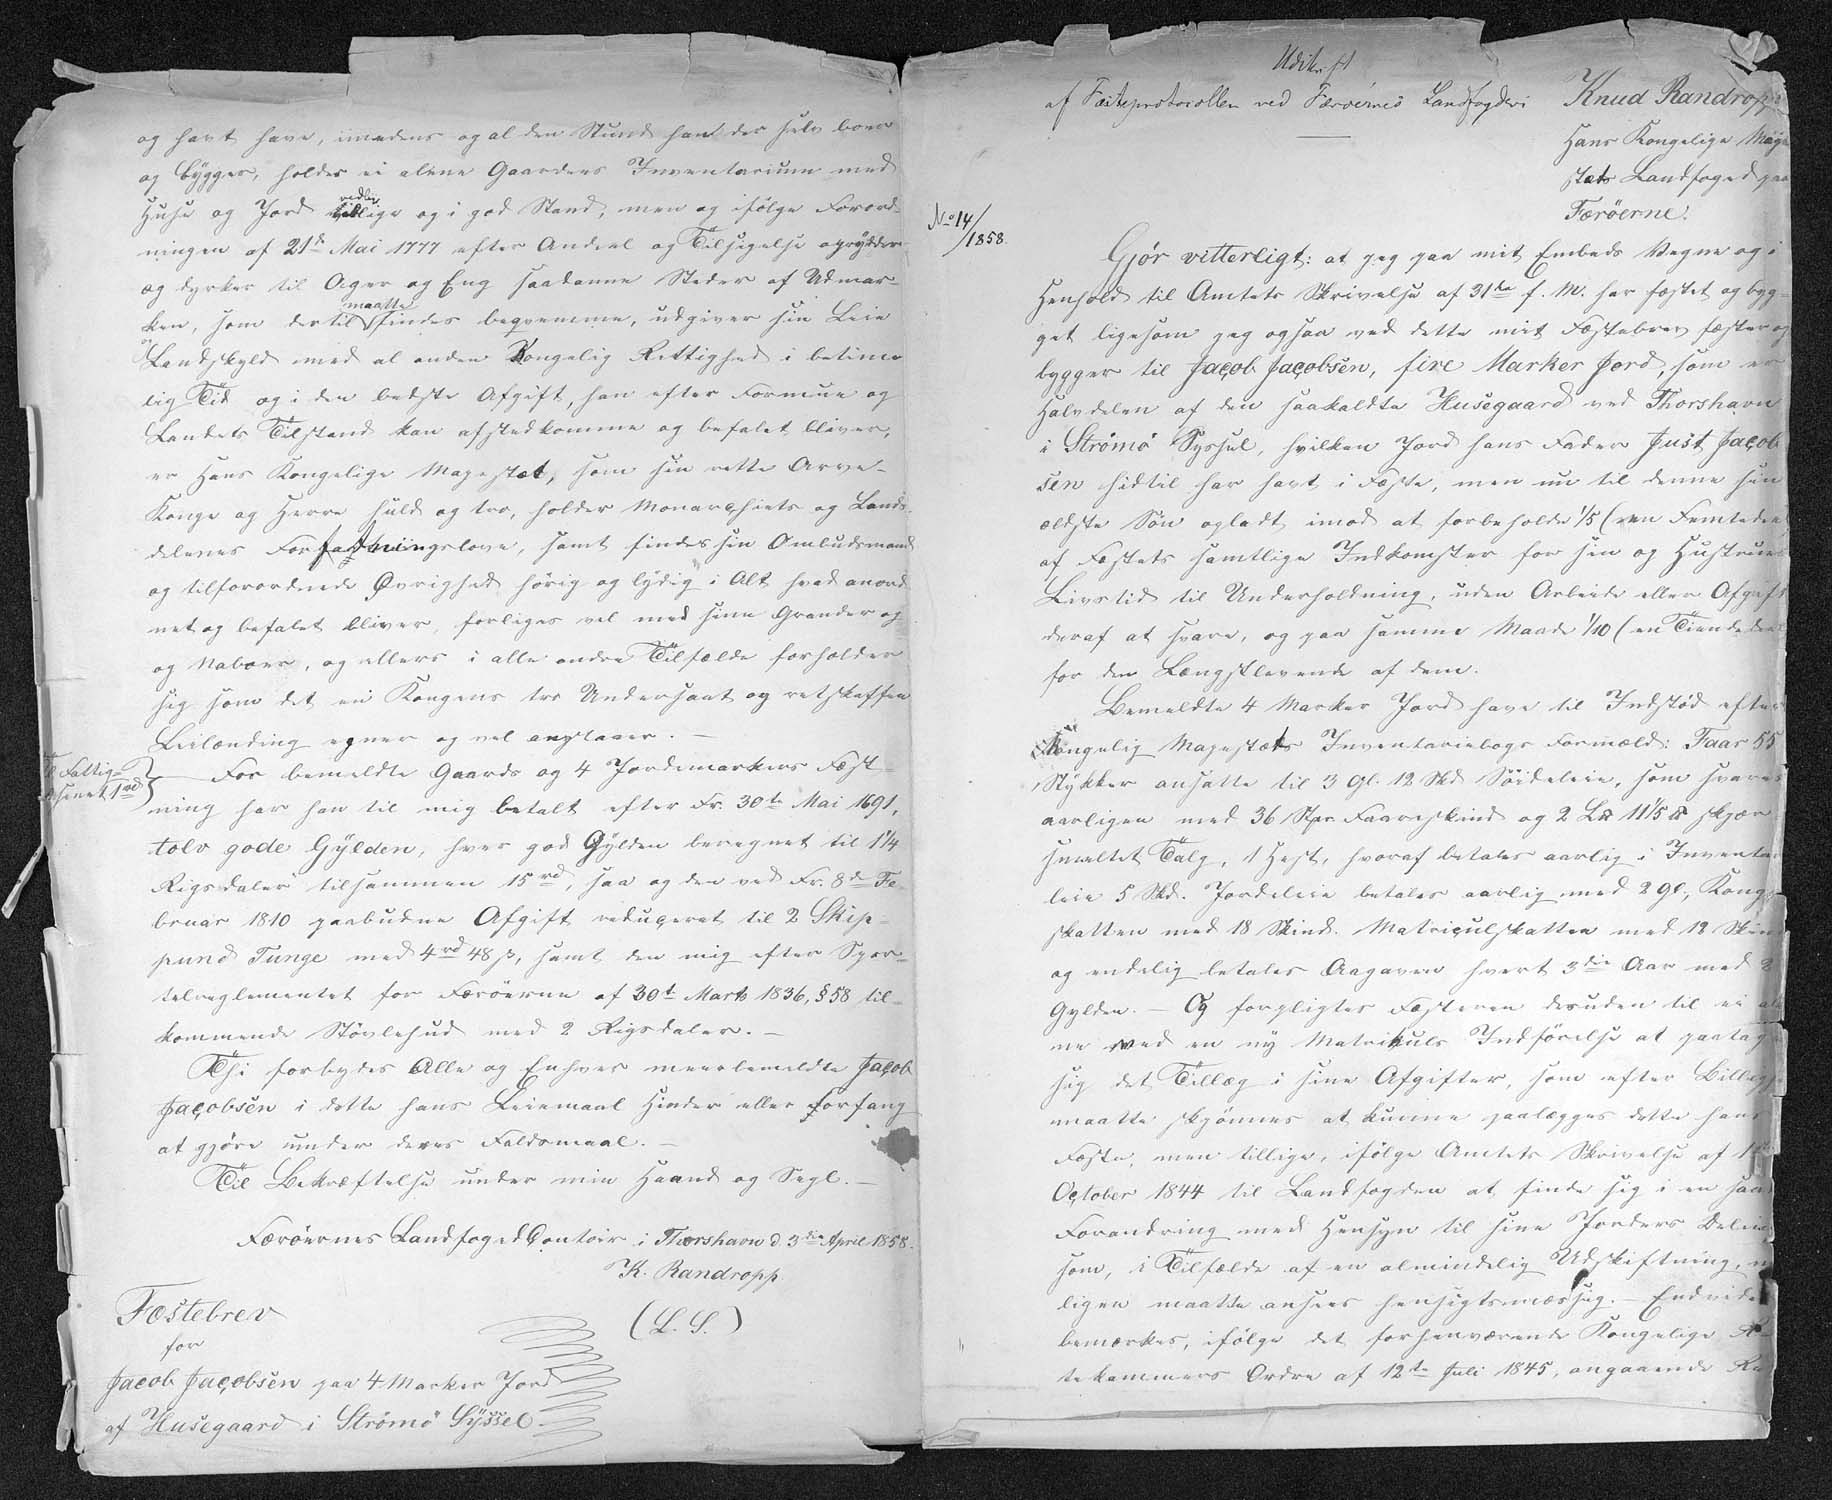 og havt have, imedens og al den Stund han der selv boer
og bygger, holder ei alene Gaardens Inventarium med
Huse og Jord vedbør-
lige og i god Stand, men og ifølge Forord-
ningen af 21de Mai 1777 efter Andeel og Tilsigelse oprydder
og dyrker til Ager og Eng saadanne Steder af Udmar-
ken, som dertil maatte findes beqvemme, udgiver sin Leie
og Landskyld med al anden Kongelig Rettighed i betime-
lig Tid og i den bedste Afgift, han efter Formue og
Landets Tilstand kan afstedkomme og befalet bliver,
er Hans Kongelige Majestæt, som sin rette Arve-
Konge og Herre huld og tro, holder Monarchiets og Lands-
delenes Forfatningslove, samt findes sin Ombudsmand
og tilforordnede Øvrighed hørig og lydig i Alt hvad anord-
net og befalet bliver, forliges vel med sine Grander og
og Naboer, og ellers i alle andre Tilfælde forholder
sig som det en Kongens tro Undersaat og retskaffen
Leilænding egner og vel anstaaer. —
Til Fattig-
væsenet 1 rd
For bemeldte Gaards og 4 Jordemarkers Fæst-
ning har han til mig betalt efter Fr. 30te Mai 1691,
tolv gode Gylden, hver god Gylden beregnet til 1 1/4
Rigsdaler tilsammen 15 rd, saa og den ved Fr. 8de Fe-
bruar 1810 paabudne Afgift reduceret til 2 Skip-
pund Tunge med 4 rd 48 ß, samt den mig efter Spor-
telreglementet for Færöerne af 30te Marts 1836, § 58 til-
kommende Støvlehud med 2 Rigsdaler. —
Thi forbydes Alle og Enhver meerbemeldte Jacob
Jacobsen i dette hans Leiemaal Hinder eller Forfang
at gjøre under deres Faldsmaal. —
Til Bekræftelse under min Haand og Segl. —
Færöernes LandfogedContoir i Thorshavn d. 3die April 1858.
K. Randropp
(L. S.)
Fæstebrev
for
Jacob Jacobsen paa 4 Marker Jord
af Husegaard i Strömö Syssel
Udskrift
af Fæsteprotocollen ved Færøernes Landfogderi
Knud Randropp
Hans Kongelige Maje-
stæts Landfoged paa
Færöerne.
No 14/1858.
Gjör vitterligt: at jeg paa mit Embeds Vegne og i
Henhold til Amtets Skrivelse af 31te f. M. har fæstet og byg-
get ligesom jeg ogsaa ved dette mit Fæstebrev fæster og
bygger til Jacob Jacobsen, fire Marker Jord, som er
Halvdelen af den saakaldte Husegaard ved Thorshavn
i Strömö Syssel, hvilken Jord hans Fader Just Jacob-
sen hidtil har havt i Fæste, men nu til denne sin
ældste Søn opladt imod at forbeholde 1/5 (een Femtedeel
af Fæstets samtlige Indkomster for sin og Hustrues
Livstid til Underholdning, uden Arbeide eller Afgift
deraf at svare, og paa samme Maade 1/10 (en Tiendedeel
for den Længstlevende af dem.
Bemeldte 4 Marker Jord have til Indstød efter
Kongelig Majestæts Inventariebogs Formæld: Faar 55
Stykker ansatte til 3 Gl. 12 Skd Söideleie, som svares
aarligen med 36 Stpr. Faareskind og 2 L℔ 11 1/5 ℔ skjær
smeltet Talg, 1 Hest, hvoraf betales aarlig i Inventar
leie 5 Skd. Jordeleie betales aarlig med 2 Gl., Konge-
skatten med 18 Skind. Matriculskatten med 12 Skind
og endelig betales Aagaven hvert 3die Aar med 2
Gylden. — Og forpligtes Fæsteren desuden til ei ale-
ne ved en ny Matrikuls Indførelse at paatage
sig det Tillæg i sine Afgifter, som efter Billighed
maatte skjønnes at kunne paalægges dette hans
Fæste, men tillige, ifølge Amtets Skrivelse af 1ste
October 1844 til Landfogden at finde sig i en saadan
Forandring med Hensyn til sine Jorders Deling
som, i Tilfælde af en almindelig Udskiftning,
ligen maatte ansees hensigtsmæssig. — Endvidere
bemærkes, ifølge det forhenværende Kongelige Ren-
tekammers Ordre af 12te Juli 1845, angaaende